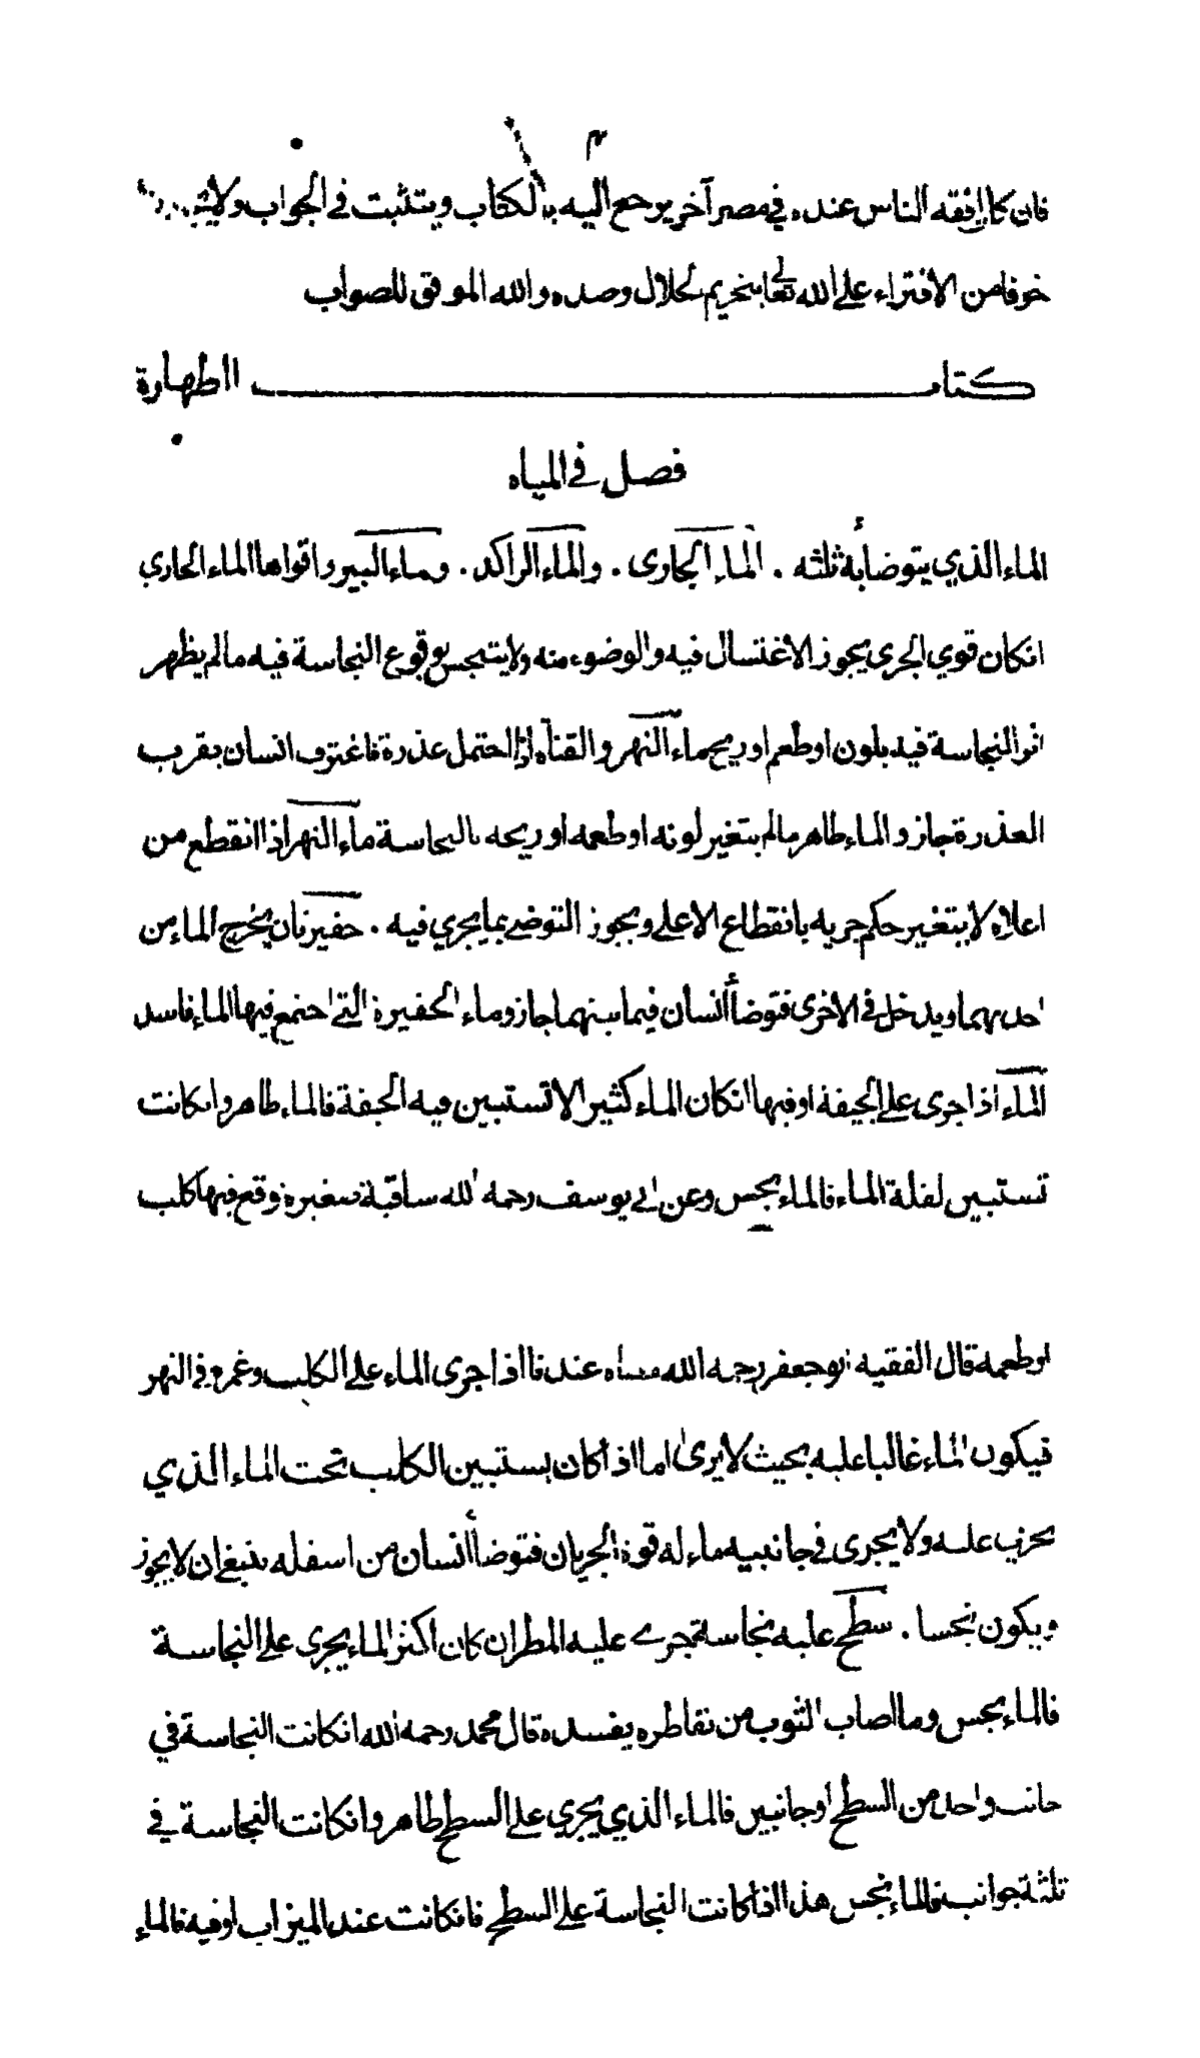 فان كان افقه الناس عنده في مصر آخر يرجع اليه بالكتاب ويتثبت في الجواب ولا
خوفا من الافتراء على الله تعالى بتحريم الحلال وضده والله الموفق للصواب
كتاب الطهارة
فصل في المياه
الماء الذي يتوضأ به ثلثه . الماء الجارى . والماء الراكد . وماء البير واقواها الماء الجاري
انكان قوي الجرى يجوز الاغتسال فيه والوضوء منه ولا يتنجس بوقوع النجاسة فيه مالم يظهر
اثر النجاسة فيه بلون او طعم او ريح ماء النهر والقناة اذا احتمل عذرة فاغترف انسان بقرب
العذرة جاز والماء طاهر مالم يتغير لونه او طعمه او ريحه بالنجاسة ماء النهر اذا انقطع من
اعلاه لا يتغير حكم جريه بانقطاع الاعلى ويجوز التوضي بما يجري فيه . حفيرتان يخرج الماء من
احدىهما ويدخل في الاخرى فتوضأ انسان فيما بينهما جاز وماء الحفيرة التي اجتمع فيها الماء فاسد
الماء اذا جرى على الجيفة او فيها انكان الماء كثيرا لا تستبين فيه الجيفة فالماء طاهر وانكانت
تستبين لقلة الماء فالماء نجس وعن ابي يوسف رحمه الله ساقية صغيرة وقع فيها كلب
او طعمه قال الفقيه ابو جعفر رحمه الله معناه عندنا اذا جرى الماء على الكلب وغمره في النهر
فيكون الماء غالبا عليه بحيث لا يرى اما اذا كان يستبين الكلب تحت الماء الذي
يجري عليه ولا يجرى في جانبيه ماء له قوة الجريان فتوضأ انسان من اسفله ينبغي ان لا يجوز
ويكون نجسا . سطح عليه نجاسة جرى عليه المطر ان كان اكثر الماء يجرى على النجاسة
فالماء نجس وما اصاب الثوب من تقاطره يفسده قال محمد رحمه الله انكانت النجاسة في
جانب واحد من السطح او جانبين فالماء الذي يجري على السطح طاهر وانكانت النجاسة في
ثلثة جوانب فالماء نجس هذا اذا كانت النجاسة على السطح فانكانت عند الميزاب او فيه فالماء